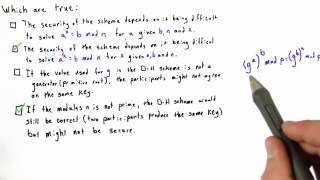 Which are true:
The security of the scheme depends on it being difficult
to solve aˣ = b mod n for a given b, n and x.
The security of the scheme depends on it being difficult
to solve aˣ = b mod n for x given a, b, and n.
If the value used for g in the D-H scheme is not a
generator (primitive root), the participants might not agree
on the same key.
If the modulus n is not prime, the D-H scheme would
still be correct (two participants produce the same key)
but might not be secure.
(gᵃ)ᵇ mod p = (gᵇ)ᵃ mod p